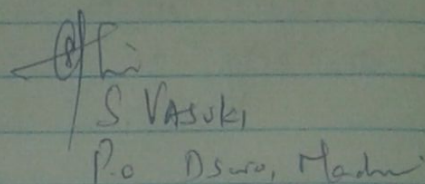 S. VASUKI
P.O DSWO, Madu